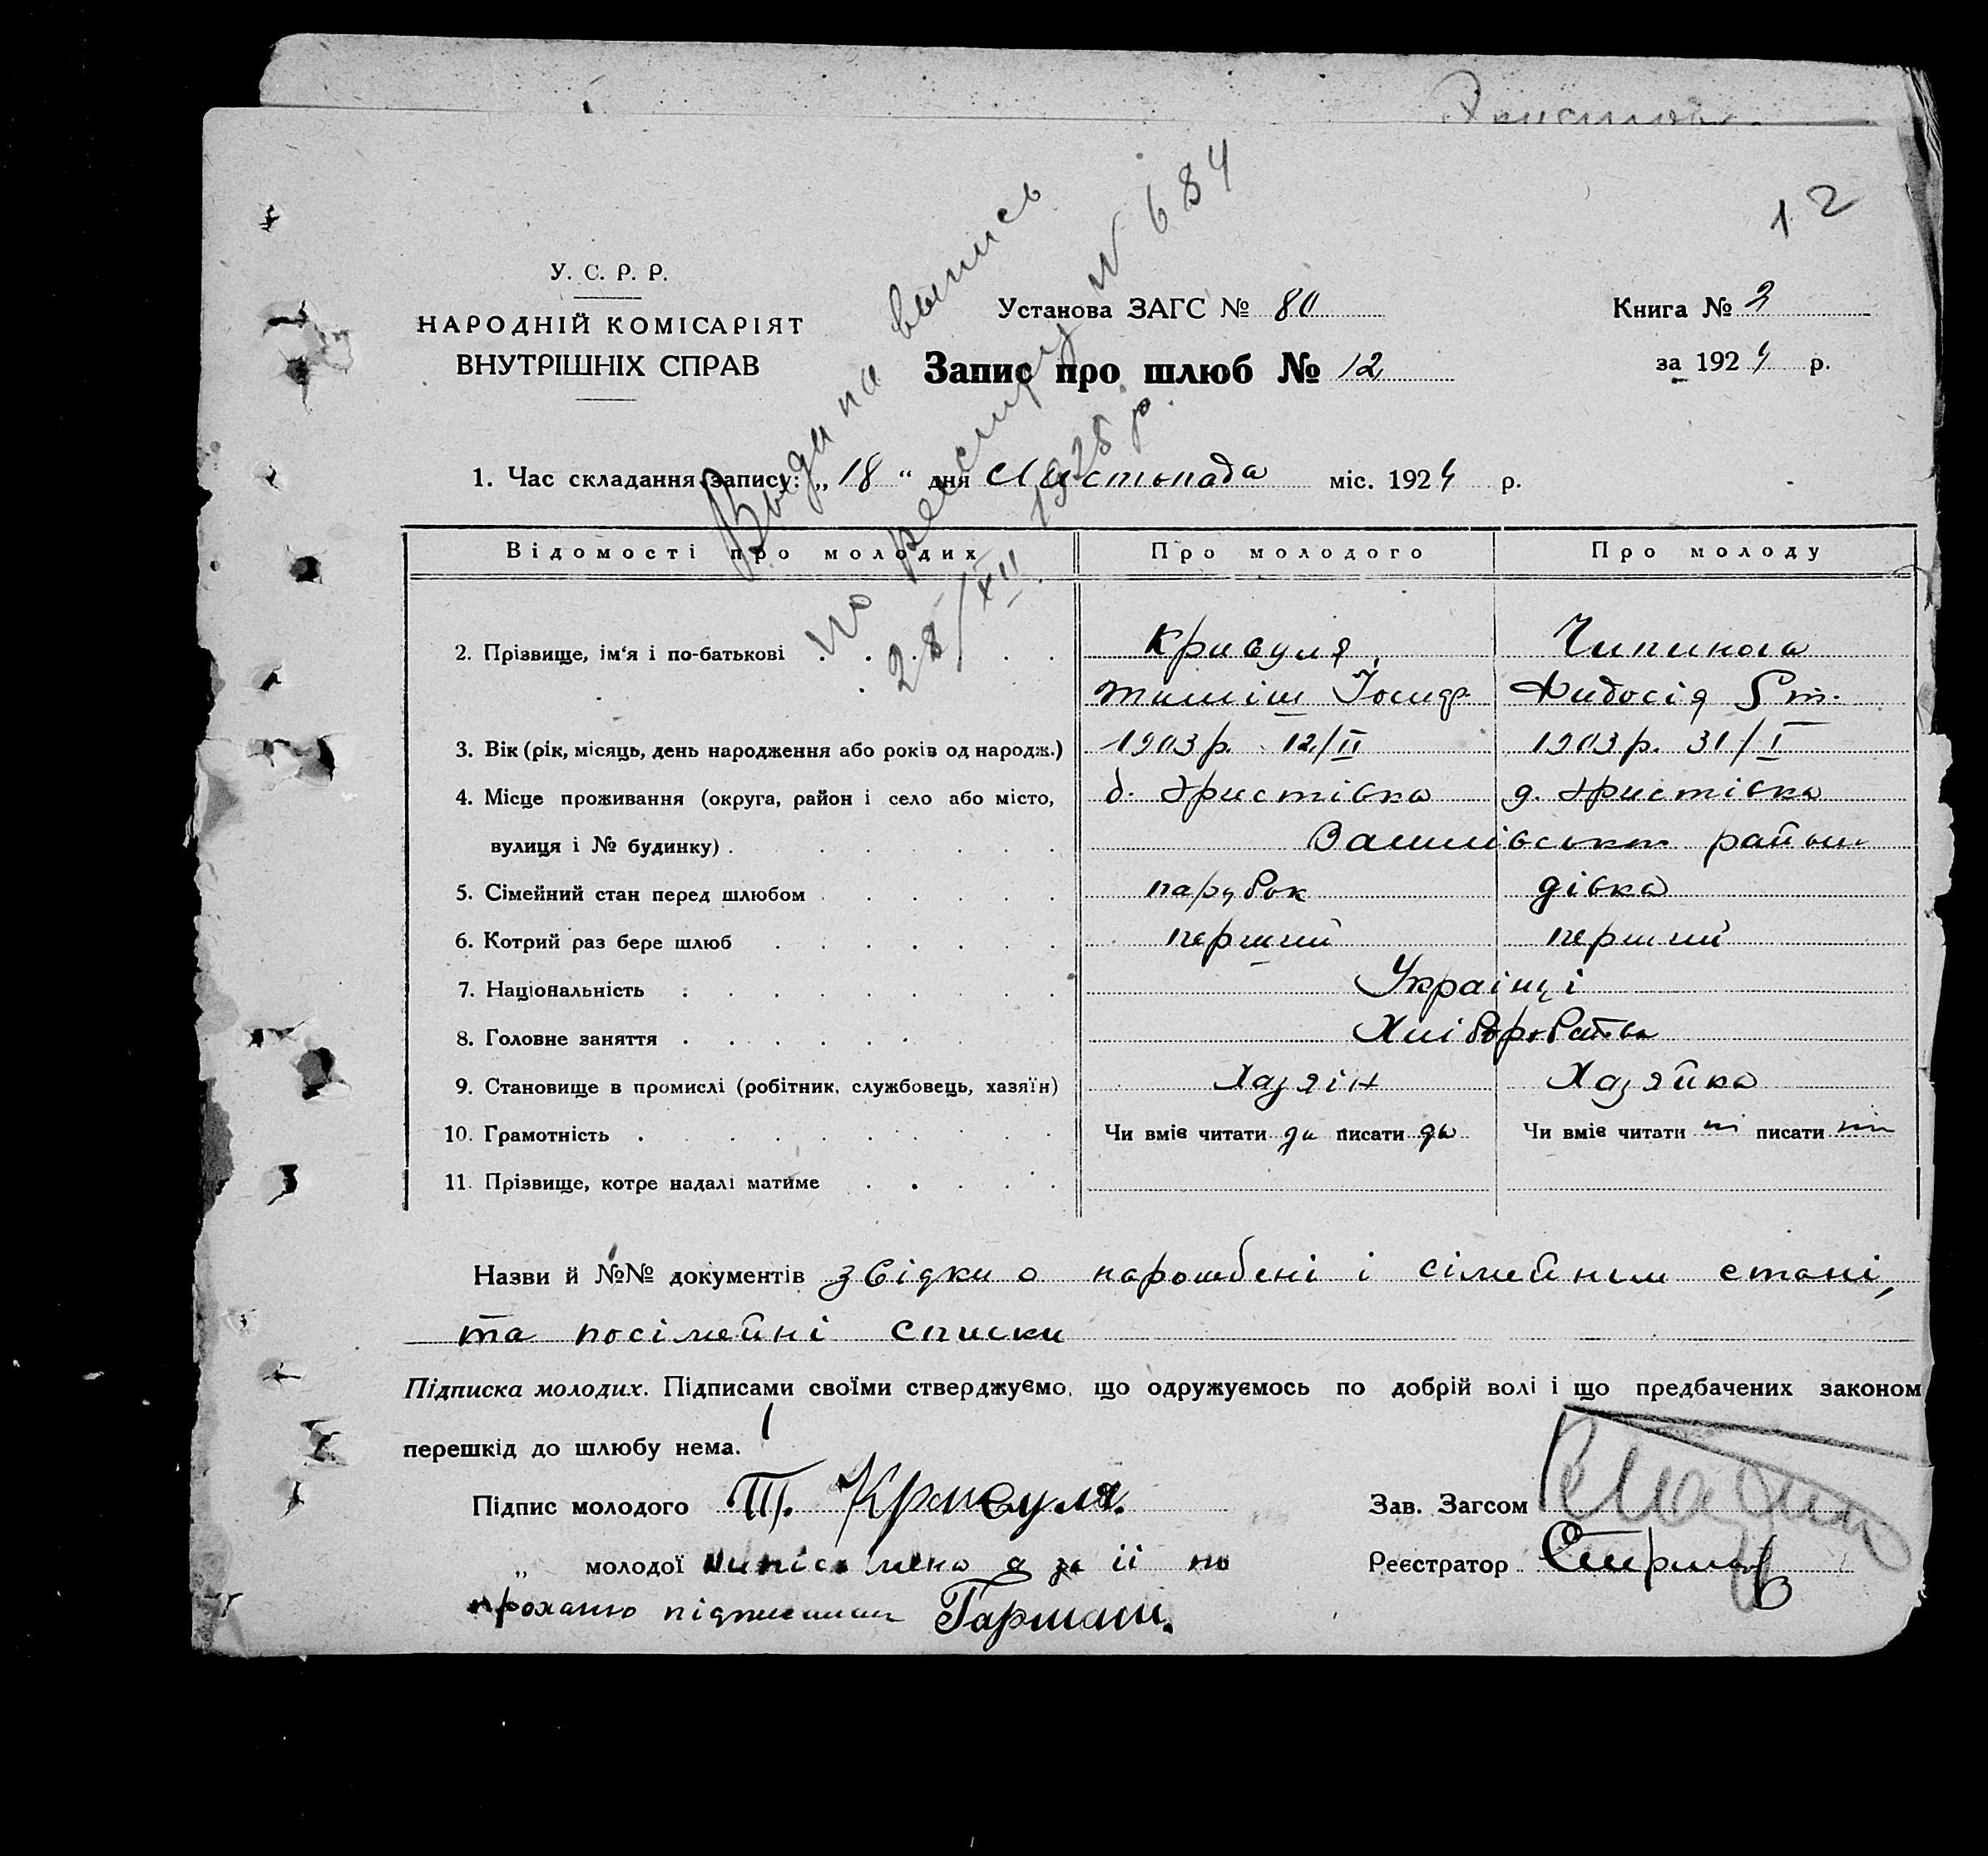 12
У. С. Р. Р.
НАРОДНІЙ КОМІСАРІЯТ
ВНУТРІШНІХ СПРАВ
Установа ЗАГС № 80
Книга № 2
Запис про шлюб № 12
за 1924 р.
Выдана выпись
по реестру № 684
28/XII 1928 р.
1. Час складання запису: „18“ дня Листопада міс. 1924 р.
Відомості про молодих Про молодого Про молоду
2. Прізвище, ім'я і по-батькові Кривуля Чипинога
Тиміш Йосиф. Хидосія
3. Вік (рік, місяць, день народження або років од народж.) 1903 р. 12/II 1903 р. 31/I
4. Місце проживання (округа, район і село або місто, д. Христівка д. Христівка
вулиця і № будинку) районе
5. Сімейний стан перед шлюбом парубок дівка
6. Котрий раз бере шлюб перший перший
7. Національність Українці
8. Головне заняття Хліборобство
9. Становище в промислі (робітник, службовець, хазяїн) Хазяін Хазяйка
10. Грамотність Чи вміє читати да писати да Чи вміє читати ні писати ні
11. Прізвище, котре надалі матиме
Назви й №№ документів звідки о нарошдені і сімейним стані,
та посімейні списки
Підписка молодих. Підписами своїми стверджуємо, що одружуємось по добрій волі і що предбачених законом
перешкід до шлюбу нема.
Підпис молодого Т. Кривуля.
Зав. Загсом
„ молодої за іі по
Реєстратор
проханю Гармаш.